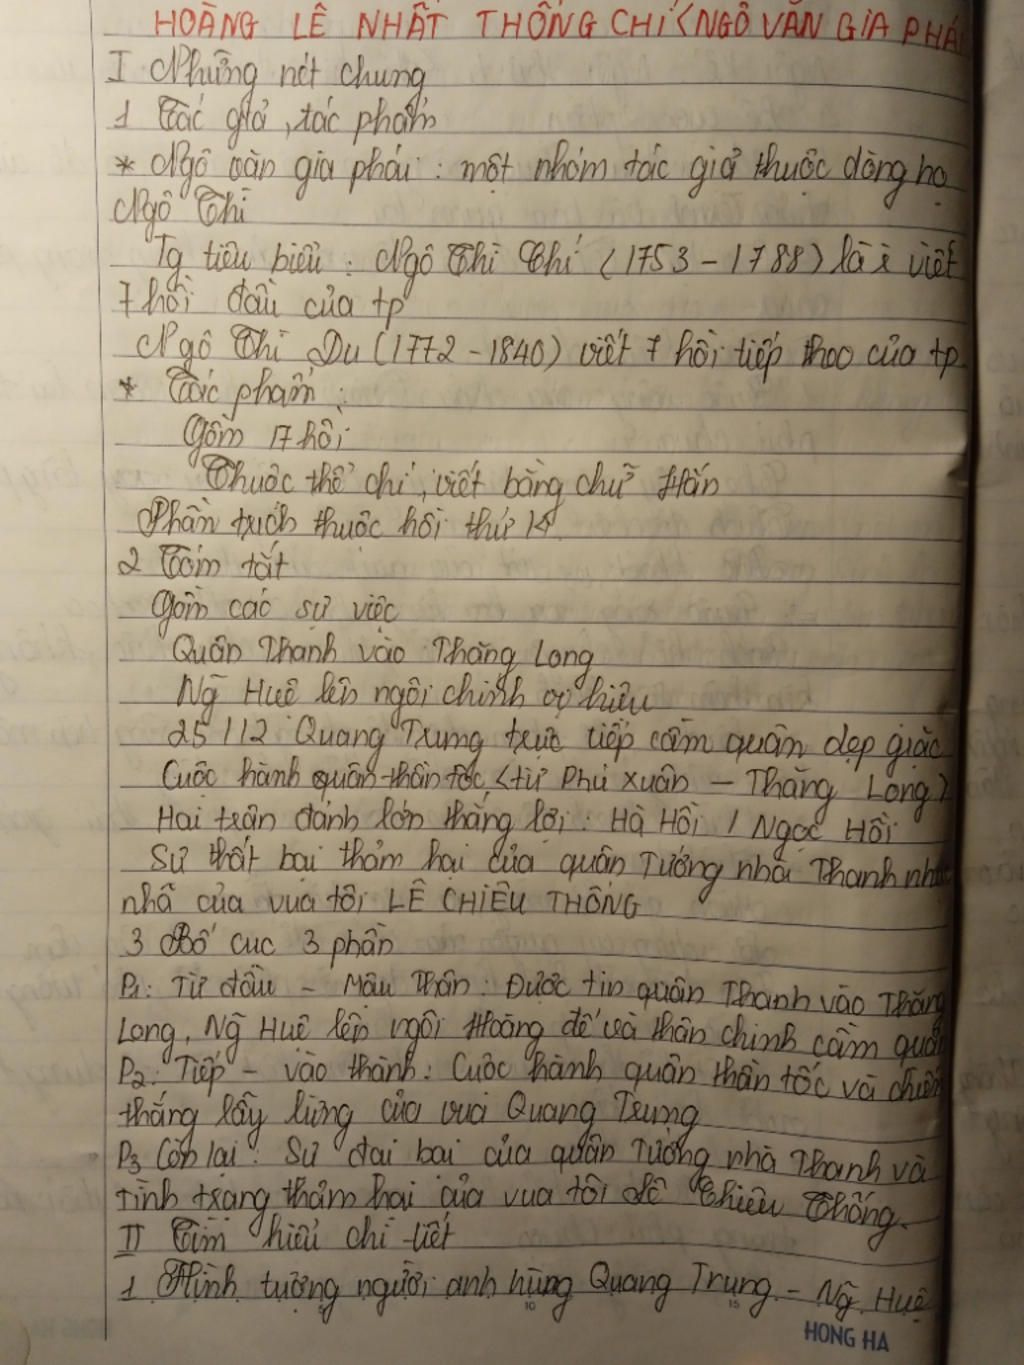 HOÀNG LÊ NHẤT THỐNG CHÍ <NGÔ VĂN GIA PHÁI
I Những nét chung
1 Tác giả, tác phẩm
* Ngô văn gia phái: một nhóm tác giả thuộc dòng họ
Ngô Thì
Tg tiêu biểu: Ngô Thì Chí (1753-1788) là viết
7 hồi đầu của tp
Ngô Thì Du (1772-1840) viết 7 hồi tiếp theo của tp
* Tác phẩm:
Gồm 17 hồi
Thuộc thể chí, viết bằng chữ Hán
Phần trích thuộc hồi thứ 14
2 Tóm tắt
Gồm các sự việc
Quân Thanh vào Thăng Long
Ng~ Huệ lên ngôi chỉnh hiệu
25/12 Quang Trung trực tiếp cầm quân dẹp giặc
Cuộc hành quân thần tốc <từ Phú Xuân - Thăng Long>
Hai trận đánh lớn thắng lợi: Hà Hồi / Ngọc Hồi
Sự thất bại thảm hại của quân Tướng nhà Thanh
nhã của vua tôi LÊ CHIÊU THỐNG
3 Bố cục 3 phần
P1: Từ đầu - Mậu Thân: Được tin quân Thanh vào Thăng
Long, Ng~ Huệ lên ngôi Hoàng đế và thân chinh cầm quân
P2: Tiếp - vào thành: Cuộc hành quân thần tốc và chiến
thắng lẫy lừng của vua Quang Trung
P3 Còn lại: Sự đại bại của quân Tướng nhà Thanh và
Tình trạng thảm hại của vua tôi Lê Chiêu Thống.
II Tìm hiểu chi tiết
1 Hình tượng người anh hùng Quang Trung - Ng~ Huệ
10 15
HONG HA